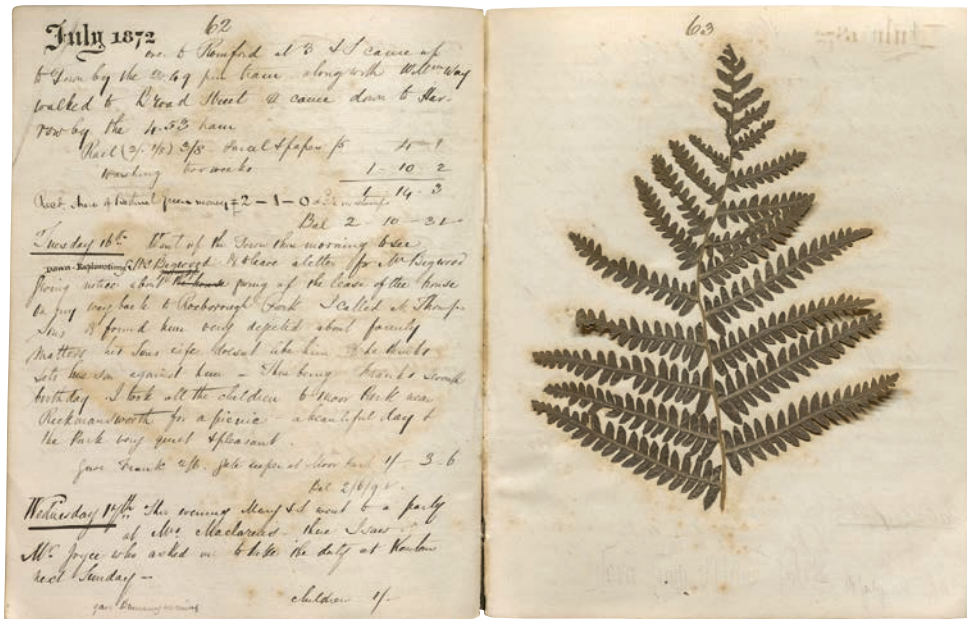 62
July 1872
to Romford at 3 & I came up
to Town by the pm train along with Willm Way
walked to Broad Street & came down to Har-
row by the 4.53 train
Rail 3/8 & paper 4 - 1
washing two weeks 1 - 10 - 2
1 - 14 - 3
money = 2 - 1 - 0
Bal 2 10
Tuesday 16th Went up the Town this morning to see
Mrs Bigwood & to leave a letter for Mr Bigwood
giving notice about the house giving up the lease of the house
on my way back to Roxborough Park I called at Thomp-
sons & found him very dejected about family
matters his sons wife doesn't like him & he thinks
sets his son against him - This being Frank's seventh
birthday I took all the children to Moor Park near
Rickmansworth for a picnic - a beautiful day &
the Park very quiet & pleasant.
Gave Frank 2/6. Gate keeper at Moor Park 1/- 3-6
Bal
Wednesday 17th This evening Mary & I went to a party
at Mrs. Maclarens - there I saw
Mr. Joyce who asked me to take the duty at
next Sunday -
children 1/-
63